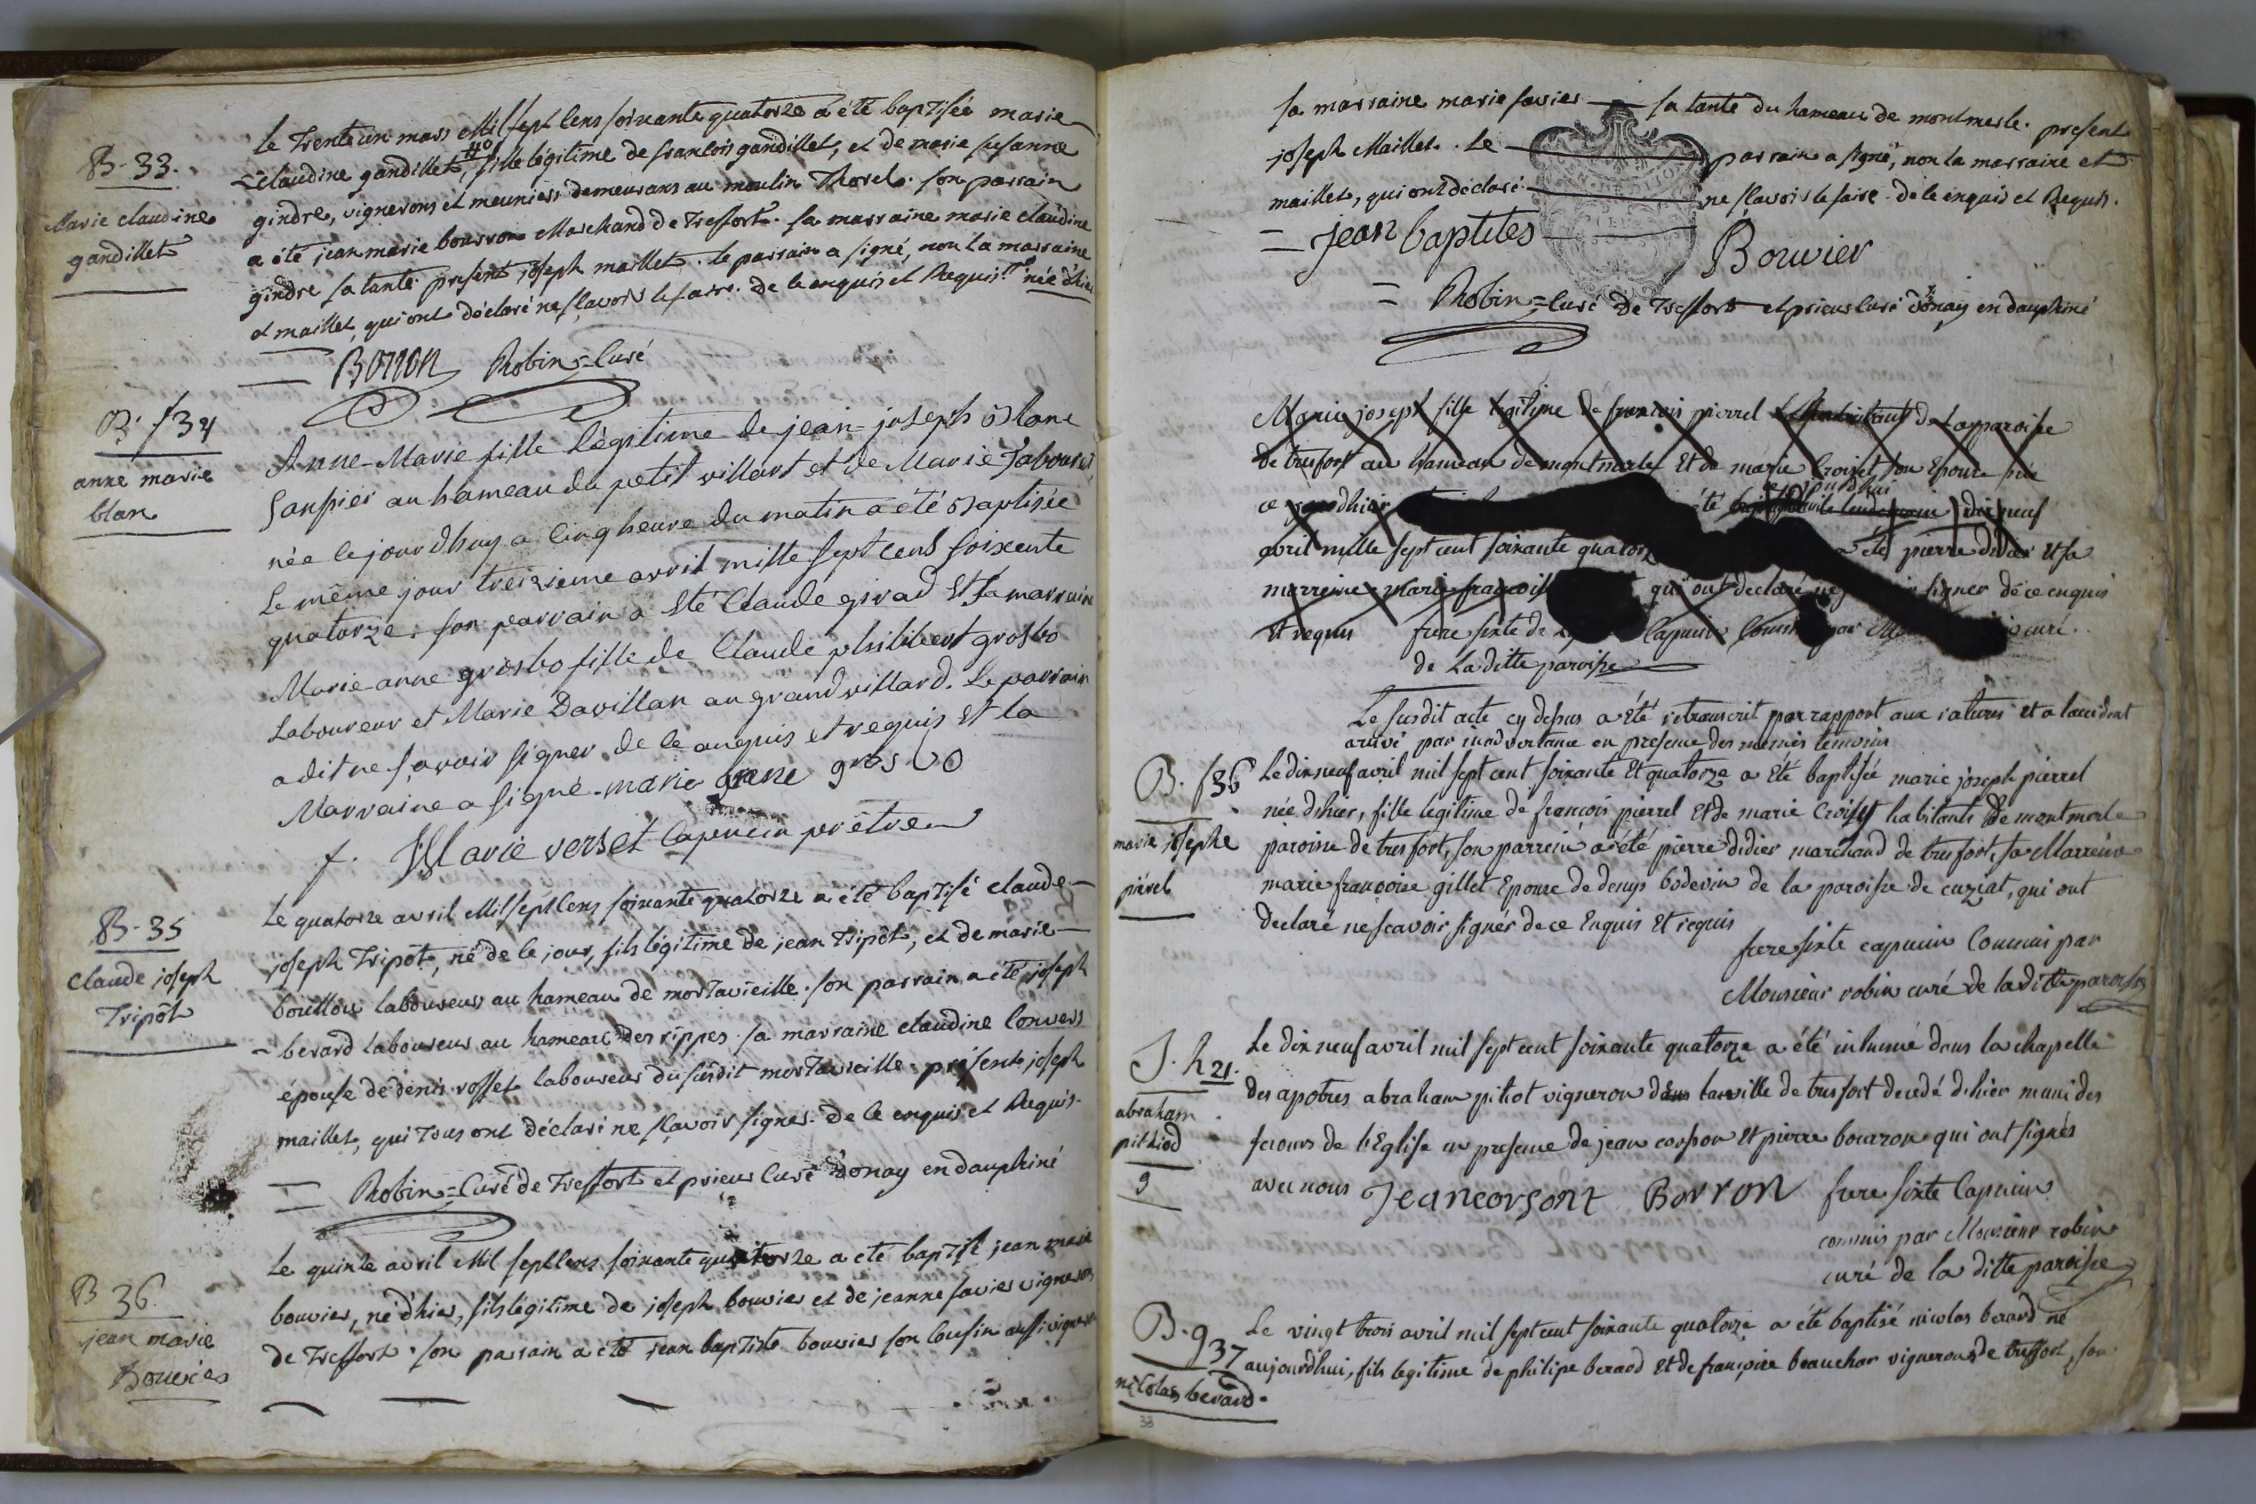 B. 33.
Marie claudine
gandillet
le Trente un mars Mil sept Cens soixante quatorze a été baptisée marie
Claudine gandillet, fille légitime de francois gandillet, et de marie susanne
gindre, vignerons et meuniers demeurans au moulin Thorel. son parrain
a été jean marie bourron Marchand de Treffort. sa marraine marie claudine
gindre sa tante. present joseph maillet. le parrain a signé, non la marraine
et maillet, qui ont déclaré ne sçavoir le faire. de ce enquis et Requis. née d'hier
Borron Robin = Curé
B. 34
anne marie
blan
Anne-Marie fille légitime de jean-joseph blanc
au hameau du petit villart et de Marie
née cejourdhuy a Cinq heure du matin a été baptisée
Le même jour treizieme avril mille sept cent soixente
quatorze: son parrain a Eté Claude girad Et sa marraine
Marie-anne grosbo fille de Claude philibert grosbo
Laboureur et Marie Davillan au grand villard. Le parrain
a dit ne savoir signer de ce anquis et requis Et la
Marraine a signé. marie anne gros bo
f. Marie verset Capucin prêtre
B. 35
Claude joseph
Tripôt
Le quatorze avril Mil sept Cens soixante quatorze a été baptisé claude
joseph Tripôt, né de ce jour, fils légitime de jean Tripôt, et de marie
bouillou laboureur au hameau de mortavieille. son parrain a été joseph
berard laboureur au hameau des rippes. sa marraine claudine Convers
épouse de denis rosset laboureur du susdit mortavieille. présent joseph
maillet, qui Tous ont déclaré ne sçavoir signer. de ce enquis et Requis.
Robin = Curé de Treffort et prieur Curé donay en dauphiné
B 36.
jean marie
Bouvier
Le quinze avril Mil sept Cens soixante quatorze a été baptisé jean marie
bouvier, né d'hier, fils légitime de joseph bouvier et de jeanne favier vignerons
de Treffort. son parrain a été jean baptiste bouvier son Cousin aussi vigneron
sa marraine marie favier sa tante du hameau de montmerle. present
joseph Maillet. Le parrain a signé, non la marraine et
maillet, qui ont déclaré ne sçavoir le faire. de ce enquis et Requis.
jean baptites Bouvier
Robin = Curé de Treffort et prieur Curé donay en dauphiné
Marie joseph fille legitime de francois pierrel de La paroisse
de tresfort au hameau de montmerle Et de marie Croiset son Epouse née
ce jourdhui
avril mille sept cent soixante quatorze a été pierre didier Et sa
marreine marie francoise qui ont declaré signer de ce enquis
Et requis frere sixte de Capucin curé
de La ditte paroisse
Le susdit acte cy dessus a été retranscrit par rapport aux ratures et a laccident
arrivé par inadvertance en presence des memes temoins
B. 36
marie josephe
pirel
Le dixneuf avril mil sept cent soixante Et quatorze a été baptisée marie joseph pierrel
née dhier, fille legitime de francois pierrel Et de marie Croiset habitants de montmerle
paroisse de tresfort, son parrein a été pierre didier marchand de tresfort, sa Marreine
marie françoise gillet Epouse de denys bodevin de la paroisse de cuziat, qui ont
declaré ne scavoir signer de ce Enquis Et requis
frere sixte capucin Commis par
Monsieur robin curé de la ditte paroisse
S. h 21.
abraham
pithiod
9
Le dix neuf avril mil sept cent soixante quatorze a été inhumé dans la chapelle
des apotres abraham pitiot vigneron dans la ville de tresfort decedé dhier muni des
secours de l'Eglise en presence de jean corson Et pierre bourron qui ont signés
avec nous Jean corsont Borron frere sixte Capucin
commis par Monsieur robin
curé de la ditte paroisse
B. 37
nicolas berard.
Le vingt trois avril mil sept cent soixante quatorze a été baptisé nicolas berard né
aujourdhui, fils legitime de philipe berard Et de françoise beauchar vignerons de treffort, son
33